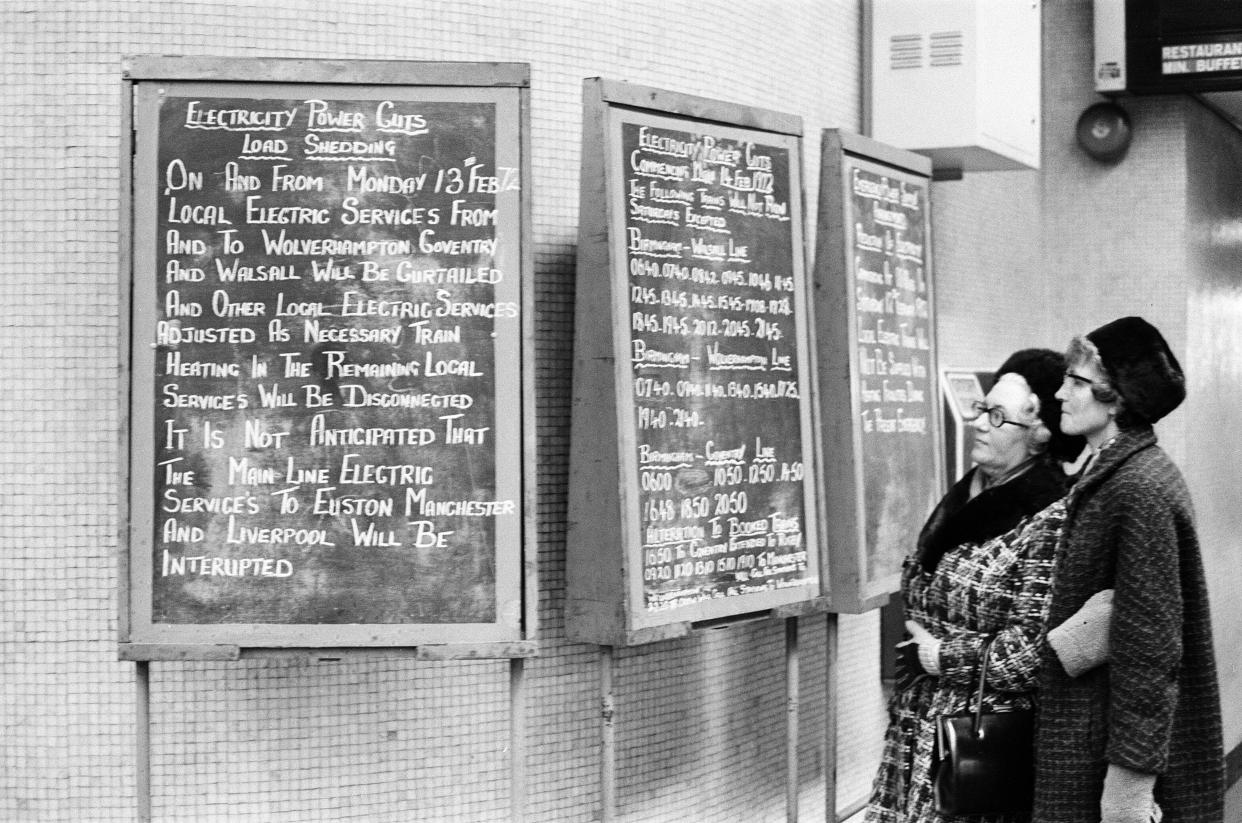 ELECTRICITY POWER CUTS
LOAD SHEDDING
ON AND FROM MONDAY 13TH FEB 72
LOCAL ELECTRIC SERVICES FROM
AND TO WOLVERHAMPTON COVENTRY
AND WALSALL WILL BE CURTAILED
AND OTHER LOCAL ELECTRIC SERVICES
ADJUSTED AS NECESSARY TRAIN
HEATING IN THE REMAINING LOCAL
SERVICE'S WILL BE DISCONNECTED
IT IS NOT ANTICIPATED THAT
THE MAIN-LINE ELECTRIC
SERVICE'S TO EUSTON MANCHESTER
AND LIVERPOOL WILL BE
INTERUPTED
ELECTRICITY POWER CUTS
COMMENCING MON 14 FEB 1972
THE FOLLOWING TRAINS WILL NOT RUN
SATURDAYS EXCEPTED
BIRMINGHAM - WALSALL LINE
0640. 0740. 0842. 0945. 1046 1145.
1245. 1345. 1445. 1545. 1708. 1728.
1845. 1945. 2012. 2045. 2145.
BIRMINGHAM - WOLVERHAMPTON LINE
0740. 0940. 1140. 1340. 1540. 1725.
1940. 2140.
BIRMINGHAM - COVENTRY LINE
0600 1050. 1250. 1450
1648 1850 2050
ALTERATION TO BOOKED TRAINS
1650 TO COVENTRY EXTENDED TO RUGBY
0920 1120 1310 1510 1910 TO MANCHESTER
WILL CALL ALL STATIONS TO
WOLVERHAMPTON
EMERGENCY POWER SUPPLY
REDUCTION OF ELECTRICITY
COMMENCING AT
SATURDAY 12TH FEBRUARY 1972
LOCAL ELECTRIC TRAINS WILL
NOT BE SUPPLIED WITH
HEATING FACILITIES DURING
THE PRESENT EMERGENCY
RESTAURAN
MIN. BUFFE